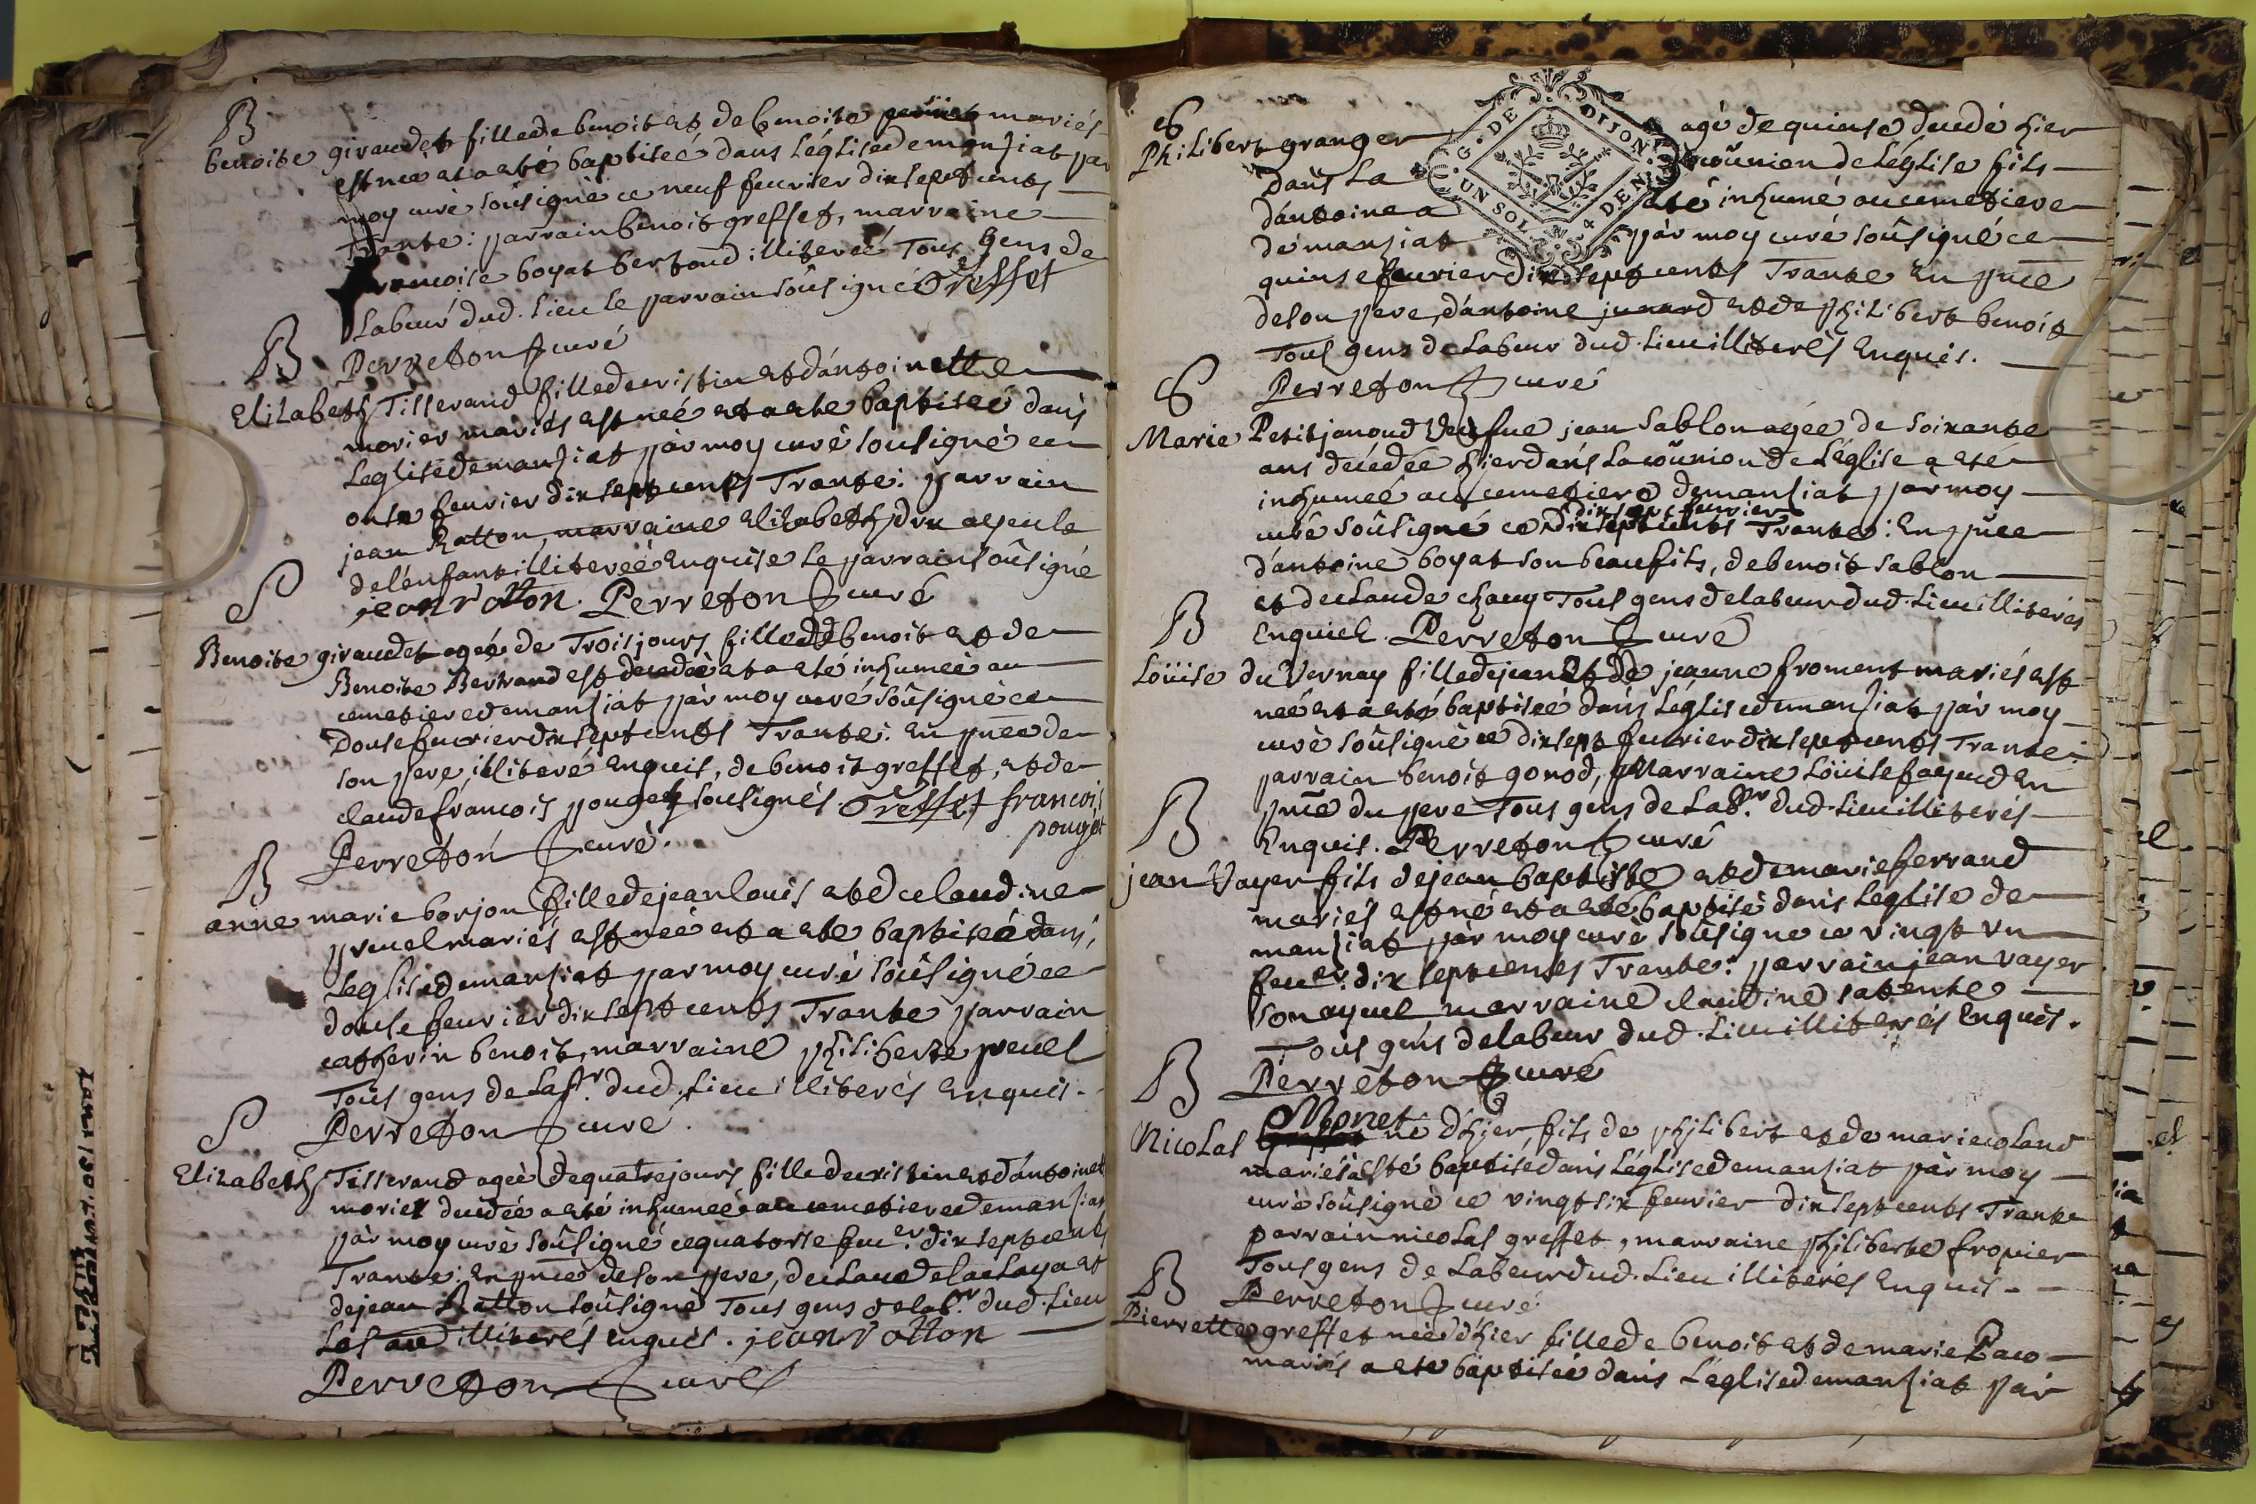 B
benoite giraudet fille de benoit et de benoite mariés
est née et a eté baptiseé dans L'église de manziat par
moy curé soûsigné ce neuf feurier dix sept cents
Trante: parrain benoit greffet, marraine
francoise boyat bertoud illitereé Tous gens de
Labeur dud. Lieu le parrain soûsigné Greffet
Perreton curé
B
Elizabeth Tisserand fille de cristin et d'antoinette
morier mariés est neé et a ete baptiseé dans
Leglise de manziat par moy curé sousigné ce
onse feurier dix sept cents Trante: parrain
jean Ratton, marraine elizabeth ayeule
de l'enfant illitereé Enquise le parrain soûsigné
jean ratton. Perreton curé
S
Benoite giraudet ageé de Trois jours fille de benoit et de
Benoite Bertrand est decedeé et a eté inhumeé au
cemetiere de manziat par moy curé soûsigné ce
Douse feurier dix sept cents Trante: En pnce de
son pere, illiteré Enquis, de benoit greffet, et de
claude francois pouget sousignés. Greffet francois
pouget
Perreton curé.
B
anne marie borjon fille de jean louis et de claudine
preuel mariés est neé et a ete baptiseé dans,
Leglise de manziat par moy curé soûsigné ce
douse feurier dix sept cents Trante parrain
catherin benoit, marraine philiberte preuel
Tous gens de Labr. dud. Lieu illiterés Enquis.
Perreton curé.
S
Elizabeth Tisserand ageé de quatre jours fille de cristin et d'antoinete
morier decedeé a eté inhumeé au cemetiere de manziat
par moy curé soûsigné ce quatorse feuer. dix sept cents
Trante: En pnce de son pere, de claude laclaya et
de jean Ratton soûsigné Tous gens de labr. dud. Lieu
Les illiterés Enquis. jean ratton
Perreton curé
S
Philibert granger agé de quinse decedé hier
dans La coũnion de L'église fils
d'antoine a eté inhumé au cemetiere
de manziat par moy curé soûsigné ce
quinse feurier dix sept cents Trante En pnce
de son pere, d'antoine junard et de philibert benoit
Tous gens de Labeur dud. Lieu illiterés Enquis.
Perreton curé
S
Marie Petitjanoud veufue jean Sablon agée de soixante
ans decedée hier dans La coũnion de L'église a ete
inhumeé au cemetiere de manziat par moy
dix sept feurier
curé soûsigné ce dix sept cents Trante: En pnce
d'antoine boyat son beaufils, de benoit Sablon
et de claude chauy Tous gens de labeur dud. Lieu illiterés
Enquis. Perreton curé
B
Loüise du Vernay fille de jean et de jeanne froment mariés est
neé et a eté baptiseé dans L'église de manziat par moy
curé soûsigné ce dix sept feurier dix sept cents Trante:
parrain benoit gonod, Marraine Loüise fayeud En
pnce du pere Tous gens de Labr. dud. Lieu illiterés
Enquis. Perreton curé
B
jean Vayer fils de jean baptiste et de marie ferrand
mariés est né et a ete baptisé dans L'eglise de
manziat par moy curé soûsigné ce vingt un
feuer. dix sept cents Trante: parrain jean vayer
son ayeul marraine claudine
Tous gens de labeur dud. Lieu illiterés Enquis.
Perreton curé
B
Monet
Nicolas né d'hier, fils de philibert et de marie coland
mariés a esté baptisé dans L'église de manziat par moy
curé soûsigné ce vingt six feurier dix sept cents Trante
parrain nicolas greffet, marraine philiberte fropier
Tous gens de Labeur dud. Lieu illiterés Enquis.
Perreton curé
B
Pierrette greffet neé d'hier fille de benoit et de marie Paco
mariés a ete baptiseé dans L'église de manziat par
G. DE DIJON
UN SOL 4 DEN.